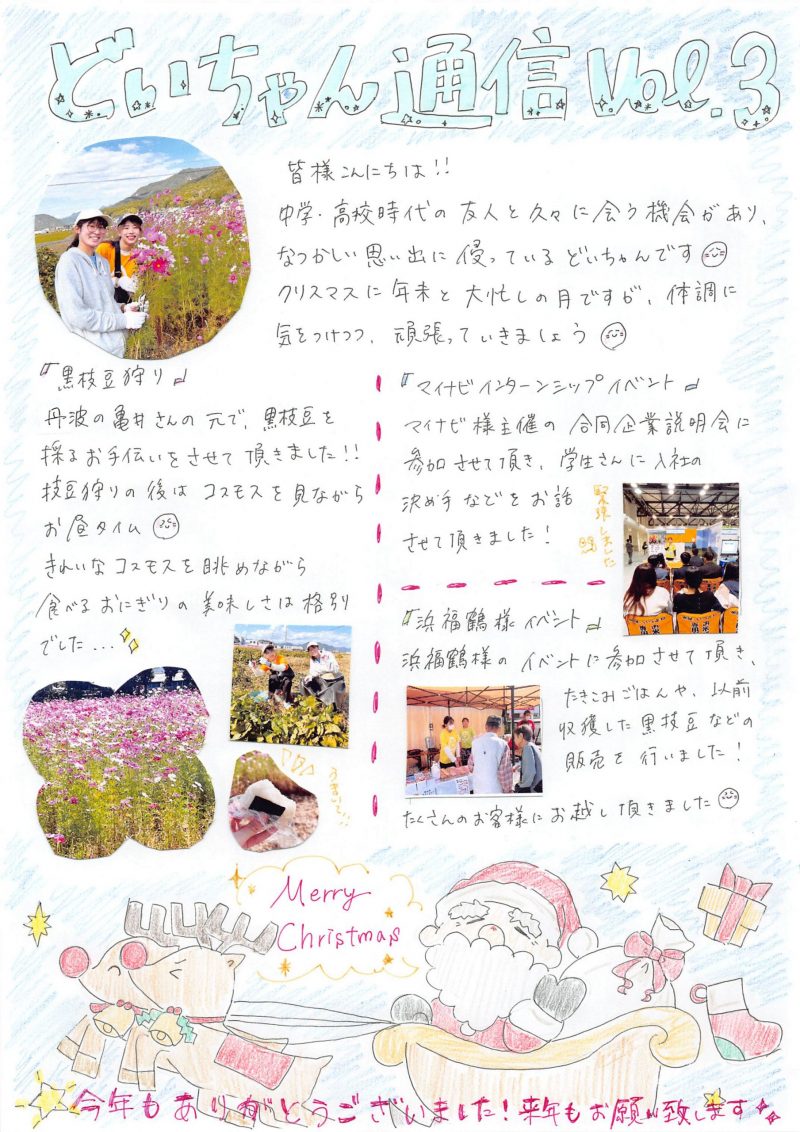 どいちゃん通信 Vol.3
皆様こんにちは!!
中学・高校時代の友人と久々に会う機会があり、
なつかしい思い出に侵っているどいちゃんです
クリスマスに年末と大忙しの月ですが、体調に
気をつけつつ、頑張っていきましょう
『黒枝豆狩り』
丹波の亀井さんの元で、黒枝豆を
採るお手伝いをさせて頂きました!!
枝豆狩りの後はコスモスを見ながら
お昼タイム
きれいなコスモスを眺めながら
食べるおにぎりの美味しさは格別
でした...
うまいっ!!
『マイナビインターンシップイベント』
マイナビ様主催の合同企業説明会に
参加させて頂き、学生さんに入社の
決め手などをお話
させて頂きました!
緊張しました
『浜福鶴様イベント』
浜福鶴様のイベントに参加させて頂き、
たきこみごはんや、以前
収獲した黒枝豆などの
販売を行いました!
たくさんのお客様にお越し頂きました
Merry
Christmas
今年もありがとうございました!来年もお願い致します